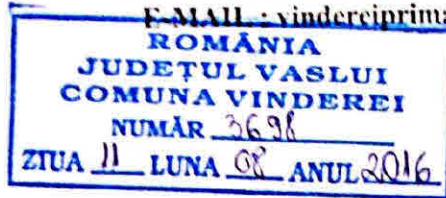 E-MAIL : vindereiprima
ROMÂNIA
JUDEȚUL VASLUI
COMUNA VINDEREI
NUMĂR 3698
ZIUA 11 LUNA 08 ANUL 2016